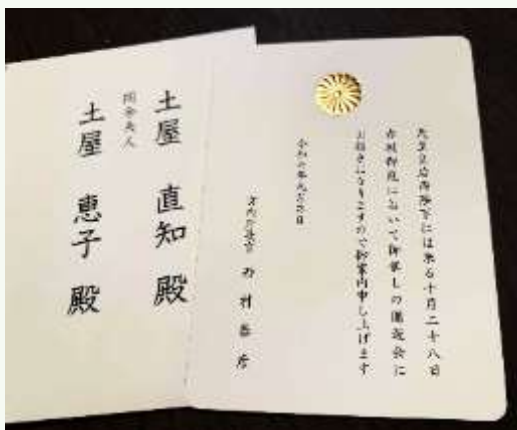 天皇皇后両陛下には来る十月二十八日
赤坂御苑において御催しの園遊会に
お招きになりますので御案内申し上げます
令和六年九月 日
宮内庁長官 西村 泰彦
土屋 直知 殿
同令夫人
土屋 恵子 殿